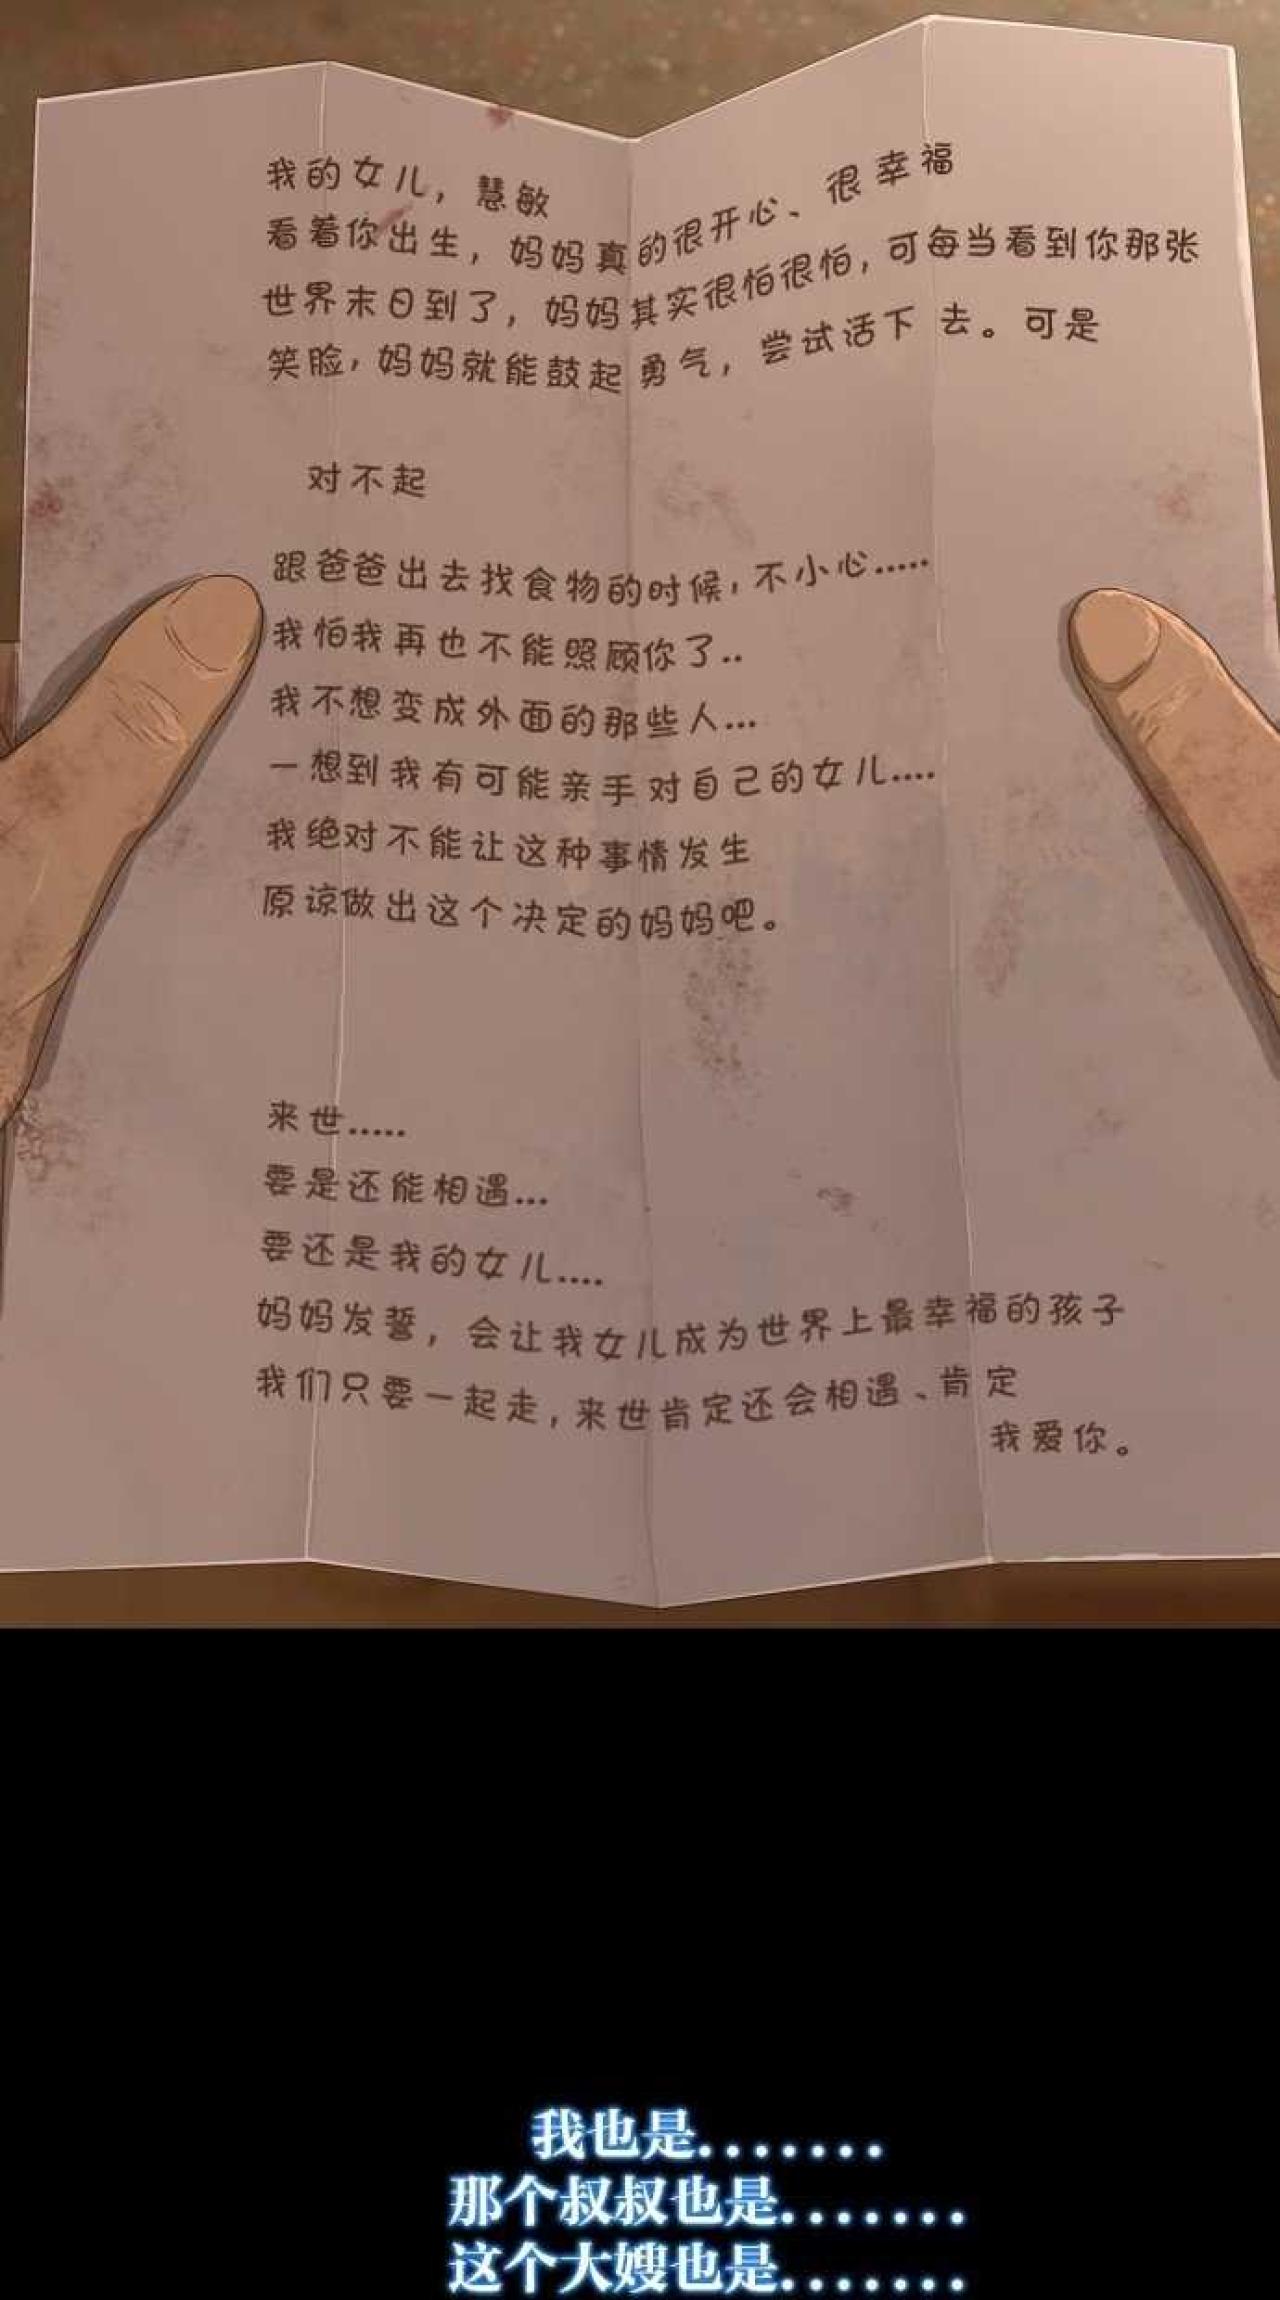 我的女儿，慧敏
看着你出生，妈妈真的很开心、很幸福
世界末日到了，妈妈其实很怕很怕，可每当看到你那张
笑脸，妈妈就能鼓起勇气，尝试活下去。可是
对不起
跟爸爸出去找食物的时候，不小心.....
我怕我再也不能照顾你了..
我不想变成外面的那些人...
一想到我有可能亲手对自己的女儿....
我绝对不能让这种事情发生
原谅做出这个决定的妈妈吧。
来世.....
要是还能相遇...
要还是我的女儿....
妈妈发誓，会让我女儿成为世界上最幸福的孩子
我们只要一起走，来世肯定还会相遇、肯定
我爱你。
我也是.......
那个叔叔也是.......
这个大嫂也是.......